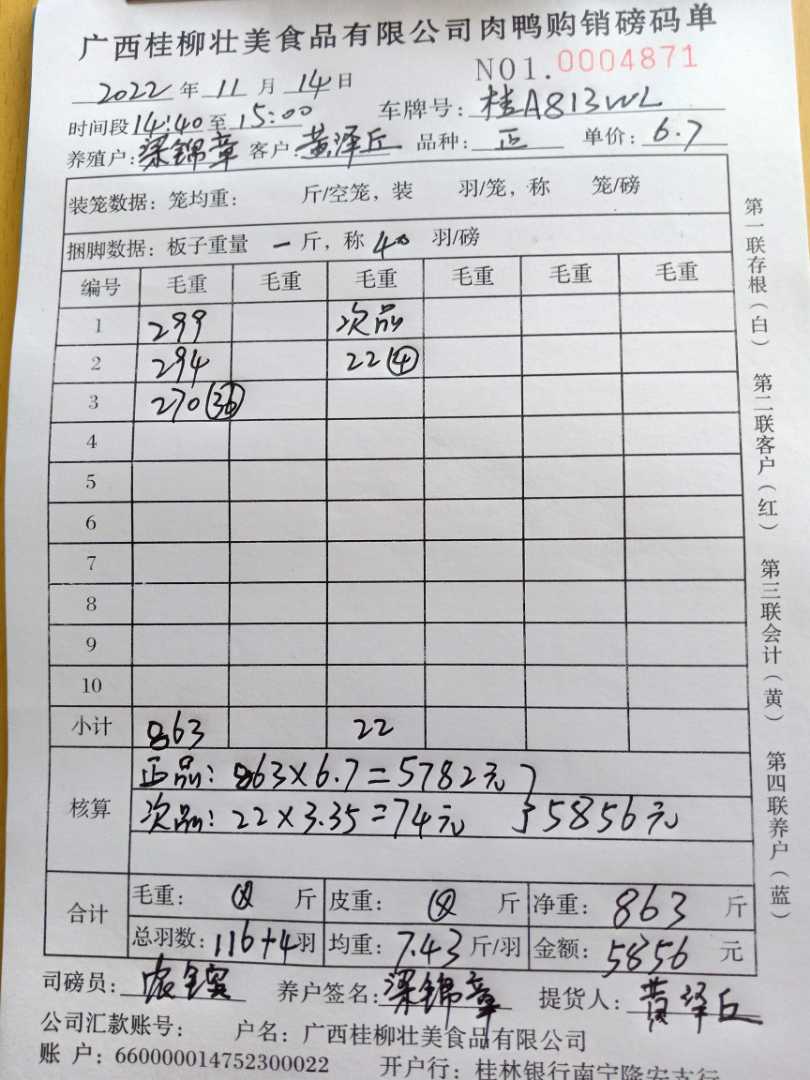 广西桂柳壮美食品有限公司肉鸭购销磅码单
NO1.0004871
2022年11月14日
时间段14:40至15:00 车牌号:桂A813WL
养殖户:梁锦章 客户:黄泽丘 品种:正 单价:6.7
装笼数据:笼均重: 斤/空笼,装 羽/笼,称 笼/磅
捆脚数据:板子重量 一斤,称40羽/磅
编号 毛重 毛重 毛重 毛重 毛重 毛重
1 299 次品
2 294 22④
3 270㊱
4
5
6
7
8
9
10
小计 863 22
核算
正品:863×6.7=5782元
次品:22×3.35=74元 }5856元
合计
毛重: 斤 皮重: 斤 净重:863斤
总羽数:116+4羽 均重:7.43斤/羽 金额:5856元
司磅员: 养户签名:梁锦章 提货人:黄泽丘
公司汇款账号: 户名:广西桂柳壮美食品有限公司
账户:660000014752300022 开户行:桂林银行南宁隆安支行
第一联存根(白) 第二联客户(红) 第三联会计(黄) 第四联养户(蓝)